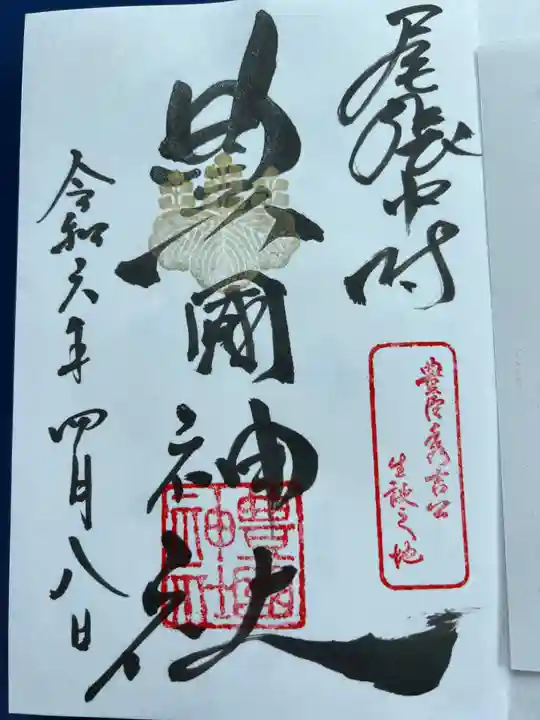 尾張中村
豊臣秀吉公
生誕之地
豊國神社
豊國
神社
令和六年四月八日